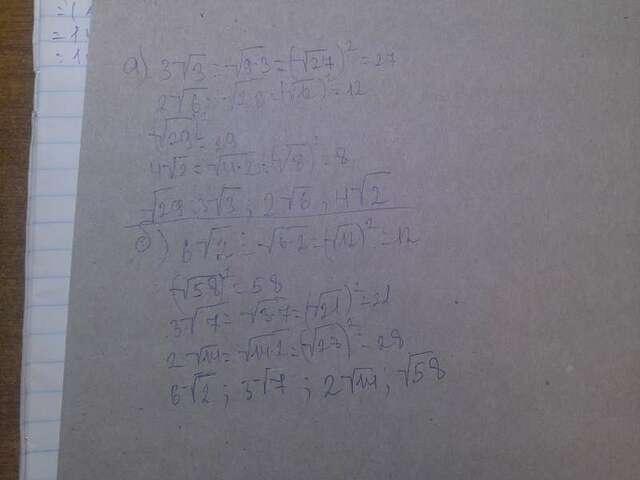 а) 3√3 = √9·3 = (√27)² = 27
2√6 = √2·6 = (√12)² = 12
(√29)² = 29
4√2 = √4·2 = (√8)² = 8
√29; 3√3; 2√6; 4√2
б) 6√2 = √6·2 = (√12)² = 12
(√58)² = 58
3√7 = √3·7 = (√21)² = 21
2√14 = √14·2 = (√28)² = 28
6√2; 3√7; 2√14; √58